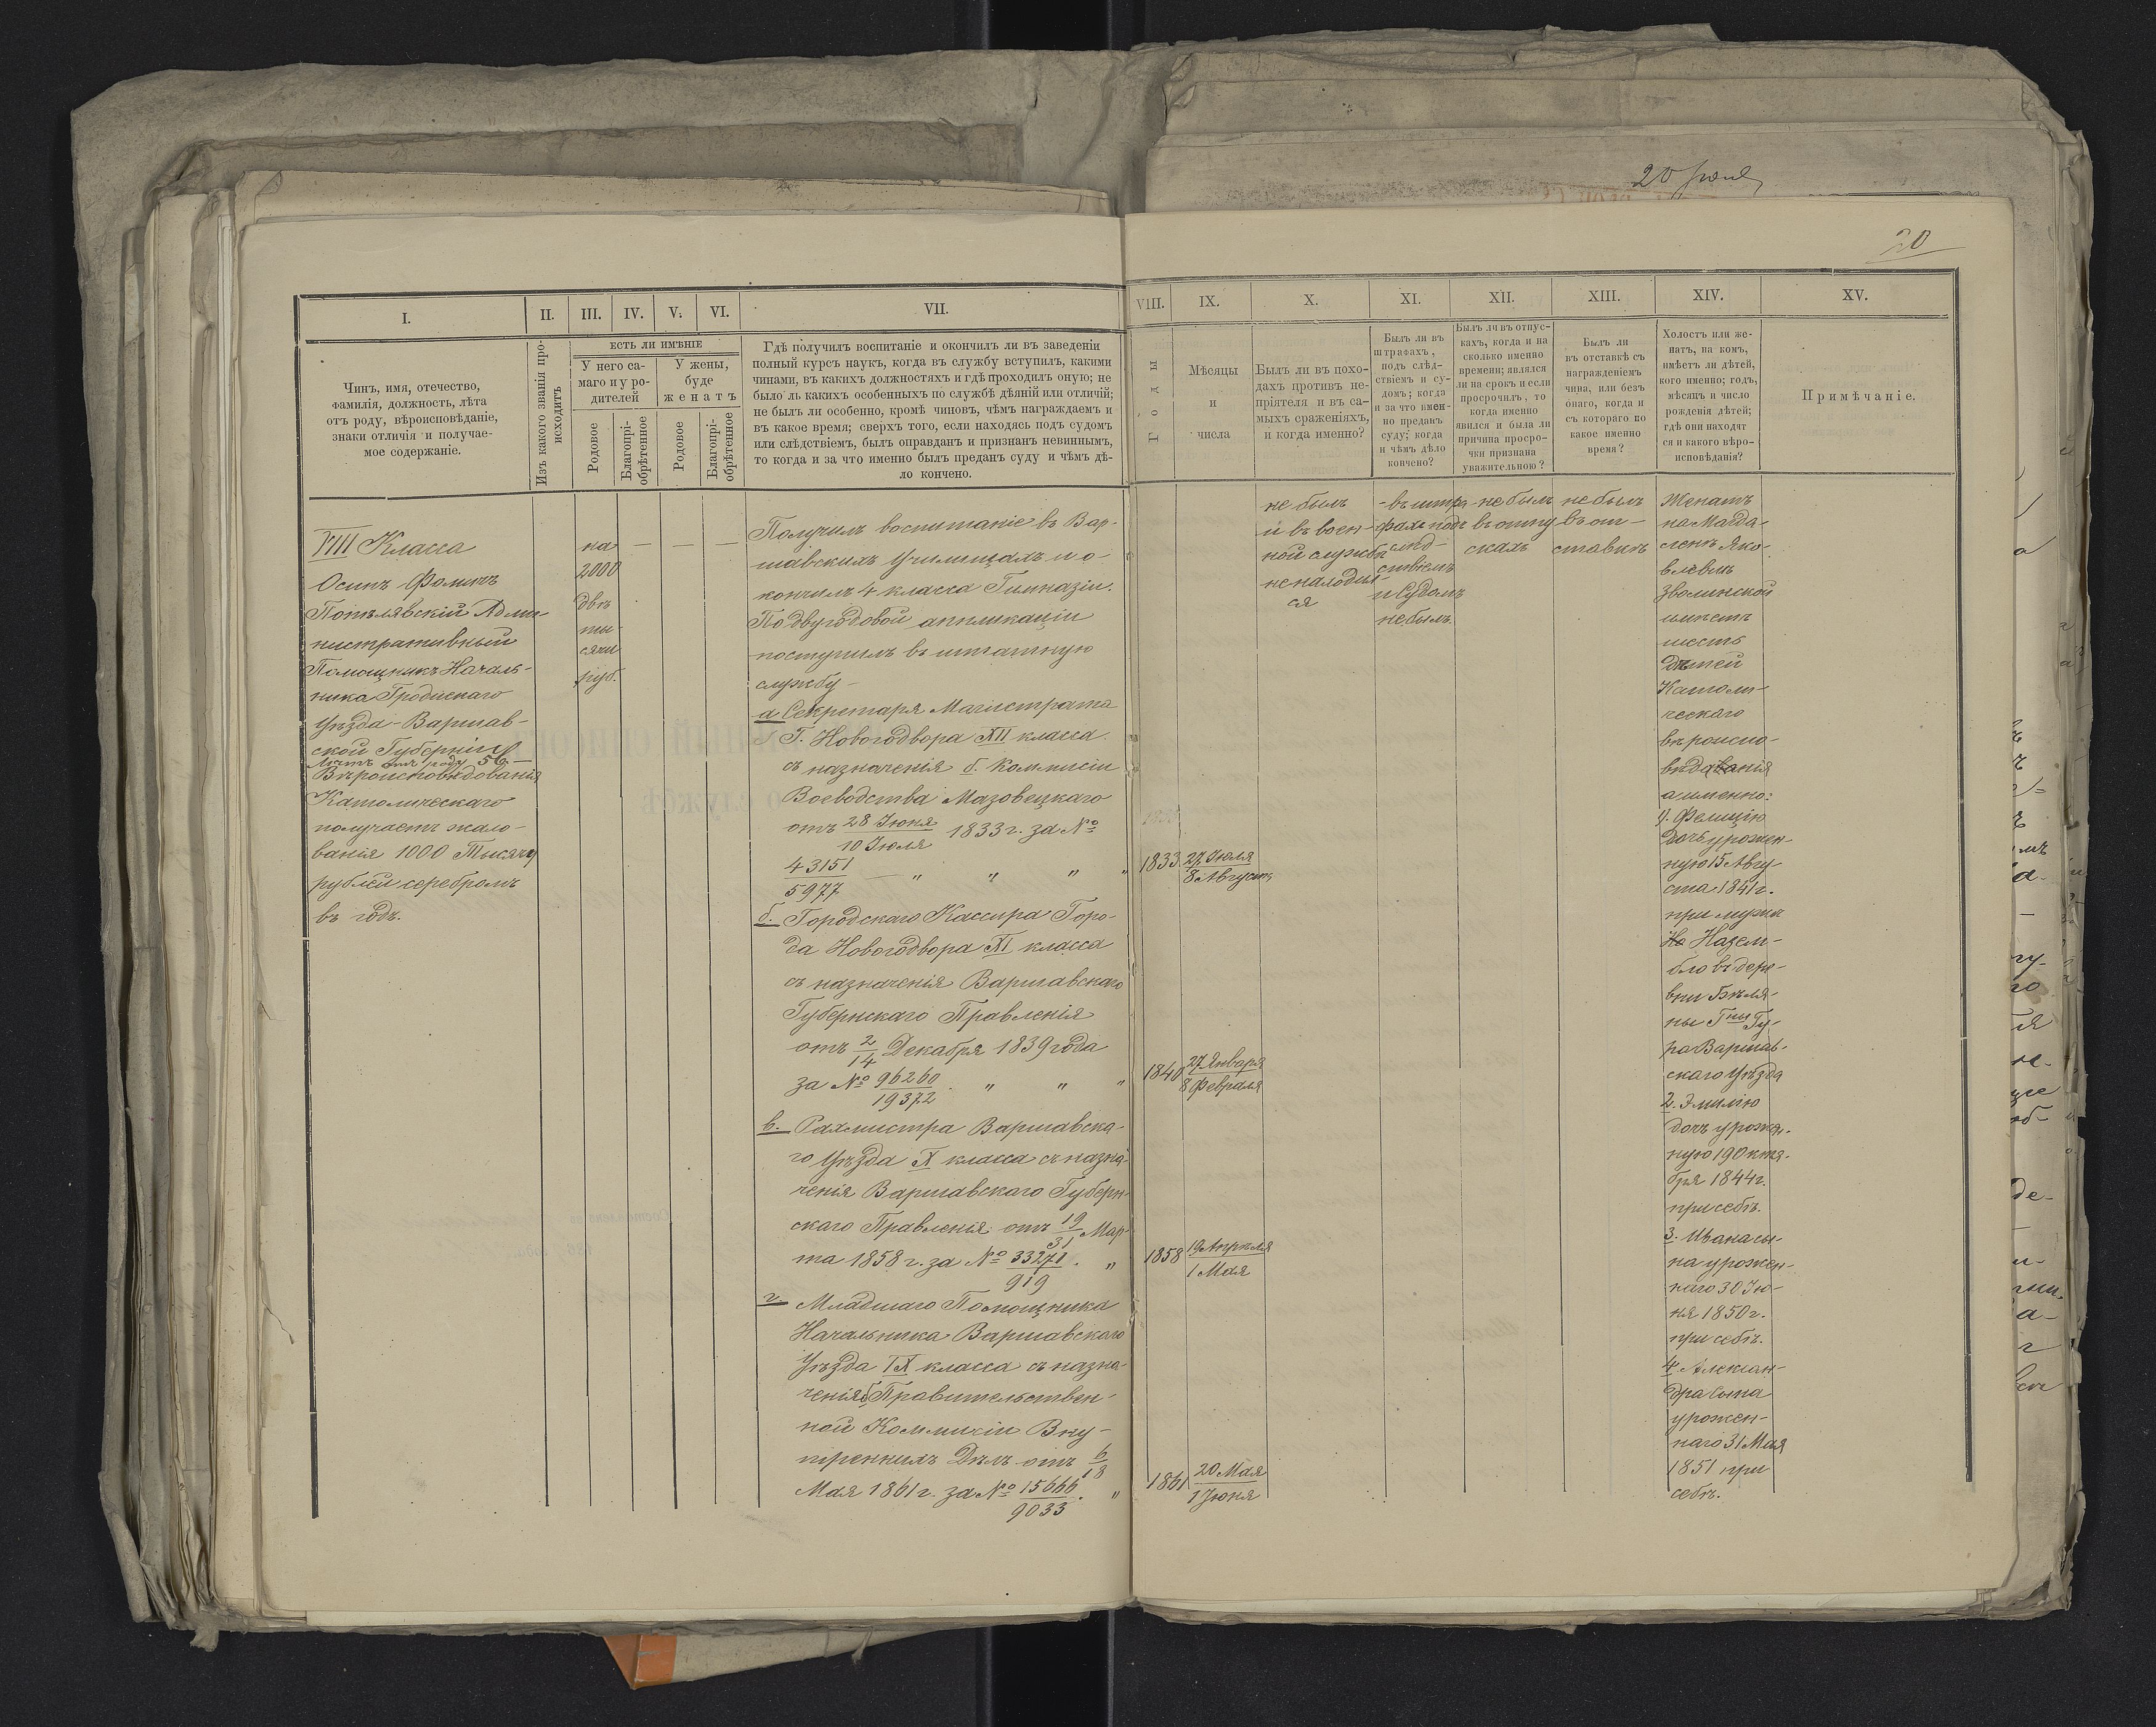 20 Іюня
20
I.
II.
III.
IV.
V.
VI.
VII.
VIII.
IX.
X.
XI.
XII.
XIII.
XIV.
XV.
Чинъ, имя, отечество,
фамилія, должность, лѣта
отъ роду, вѣроисповѣданіе,
знаки отличія и получае-
мое содержаніе.
Изъ какого званія про-
исходитъ
ЕСТЬ ЛИ ИМѢНІЕ
У него са-
маго и у ро-
дителей
У жены,
буде
женатъ
Родовое
Благопрі-
обрѣтенное
Родовое
Благопрі-
обрѣтенное
Гдѣ получилъ воспитаніе и окончилъ ли въ заведеніи
полный курсъ наукъ, когда въ службу вступилъ, какими
чинами, въ какихъ должностяхъ и гдѣ проходилъ оную; не
было ль какихъ особенныхъ по службѣ дѣяній или отличій;
не былъ ли особенно, кромѣ чиновъ, чѣмъ награждаемъ и
въ какое время; сверхъ того, если находясь подъ судомъ
или слѣдствіемъ, былъ оправданъ и признанъ невиннымъ,
то когда и за что именно былъ преданъ суду и чѣмъ дѣ-
ло кончено.
Годы
Мѣсяцы
и
числа
Былъ ли въ похо-
дахъ противъ не-
пріятеля и въ са-
мыхъ сраженіяхъ,
и когда именно?
Былъ ли въ
штрафахъ,
подъ слѣд-
ствіемъ и су-
домъ; когда
и за что имен-
но преданъ
суду; когда
и чѣмъ дѣло
кончено?
Былъ ли въ отпус-
кахъ, когда и на
сколько именно
времени; явился
ли на срокъ и если
просрочилъ, то
когда именно
явился и была ли
причина просро-
чки признана
уважительною?
Былъ ли
въ отставкѣ съ
награжденіемъ
чина, или безъ
онаго, когда и
съ котораго по
какое именно
время?
Холостъ или же-
натъ, на комъ,
имѣетъ ли дѣтей,
кого именно; годъ,
мѣсяцъ и число
рожденія дѣтей;
гдѣ они находят
ся и какого вѣро-
исповѣданія?
Примѣчаніе.
VIII Класса
Осипъ Фомичъ
Административный
Помощникъ Началь-
ника Гродискаго
Уѣзда Варшав-
ской Губерніи
лѣтъ отъ роду 56.—
Вѣроисповѣдованія
Католическаго
получаетъ жало-
ванія 1000 Тысячу
рублей серебромъ
въ годъ.
на
2000
двѣ
ты-
сячи
руб.
— — —
Получилъ воспитаніе въ Вар-
шавскихъ Училищахъ и о-
кончилъ 4 класса Гимназіи.
По двугодовой аппликаціи
поступилъ въ штатную
службу —
а Секретаря Магистрата
Г. Новогодвора XII класса.
съ назначенія б. Коммисіи
Воеводства Мазовецкаго
отъ 28 Іюня/10 Іюля 1833 г. за №
43151/5977 — „ „ „ „
б. Городскаго Кассира Горо-
да Новогодвора XI класса
съ назначенія Варшавскаго
Губернскаго Правленія
отъ 2/14 Декабря 1839 года
за № 96260/19372 . „ „ „
в. Рахмистра Варшавска-
го Уѣзда X класса съ назна-
ченія Варшавскаго Губерн-
скаго Правленія отъ 19/31 Мар-
та 1858 г. за № 33271/919 . „
г. Младшаго Помощника
Начальника Варшавскаго
Уѣзда IX класса съ назна-
ченія б. Правительствен-
ной Коммисіи Вну-
треннихъ Дѣлъ отъ 6/18
Мая 1861 г. за № 15666/9033 . „
1833 27 Іюля/8 Августа
1840 27 Января/8 Февраля
1858 19 Апрѣля/1 Мая
1861 20 Мая/1 Іюня
не былъ
и въ воен-
ной службѣ
не находил-
ся
въ штра-
фахъ подъ
слѣд-
ствіемъ
и Судомъ
не былъ
не былъ
въ отпу
скахъ
не былъ
въ от-
ставкѣ
Женатъ
на Магда-
ленѣ Яко-
влевнѣ
Зволинской
имѣетъ
шесть
дѣтей
Католи-
ческаго
вѣроиспо-
вѣдованія
а именно:
1. Фелицію
Дочь урожен
ную 15 Авгу
ста 1841 г.
при мужѣ
въ дере-
вни Бѣля-
ны Гины Гу-
ра Варшав-
скаго Уѣзда
2. Эмилію
дочь урожен.
ную 19 Октя-
бря 1844 г.
при себѣ.
3. Ивана сы-
на урожен-
наго 30 Ію-
ня 1850 г.
при себѣ.
4. Алексан-
дра Сына
урожен-
наго 31 Мая
1851 при
себѣ.